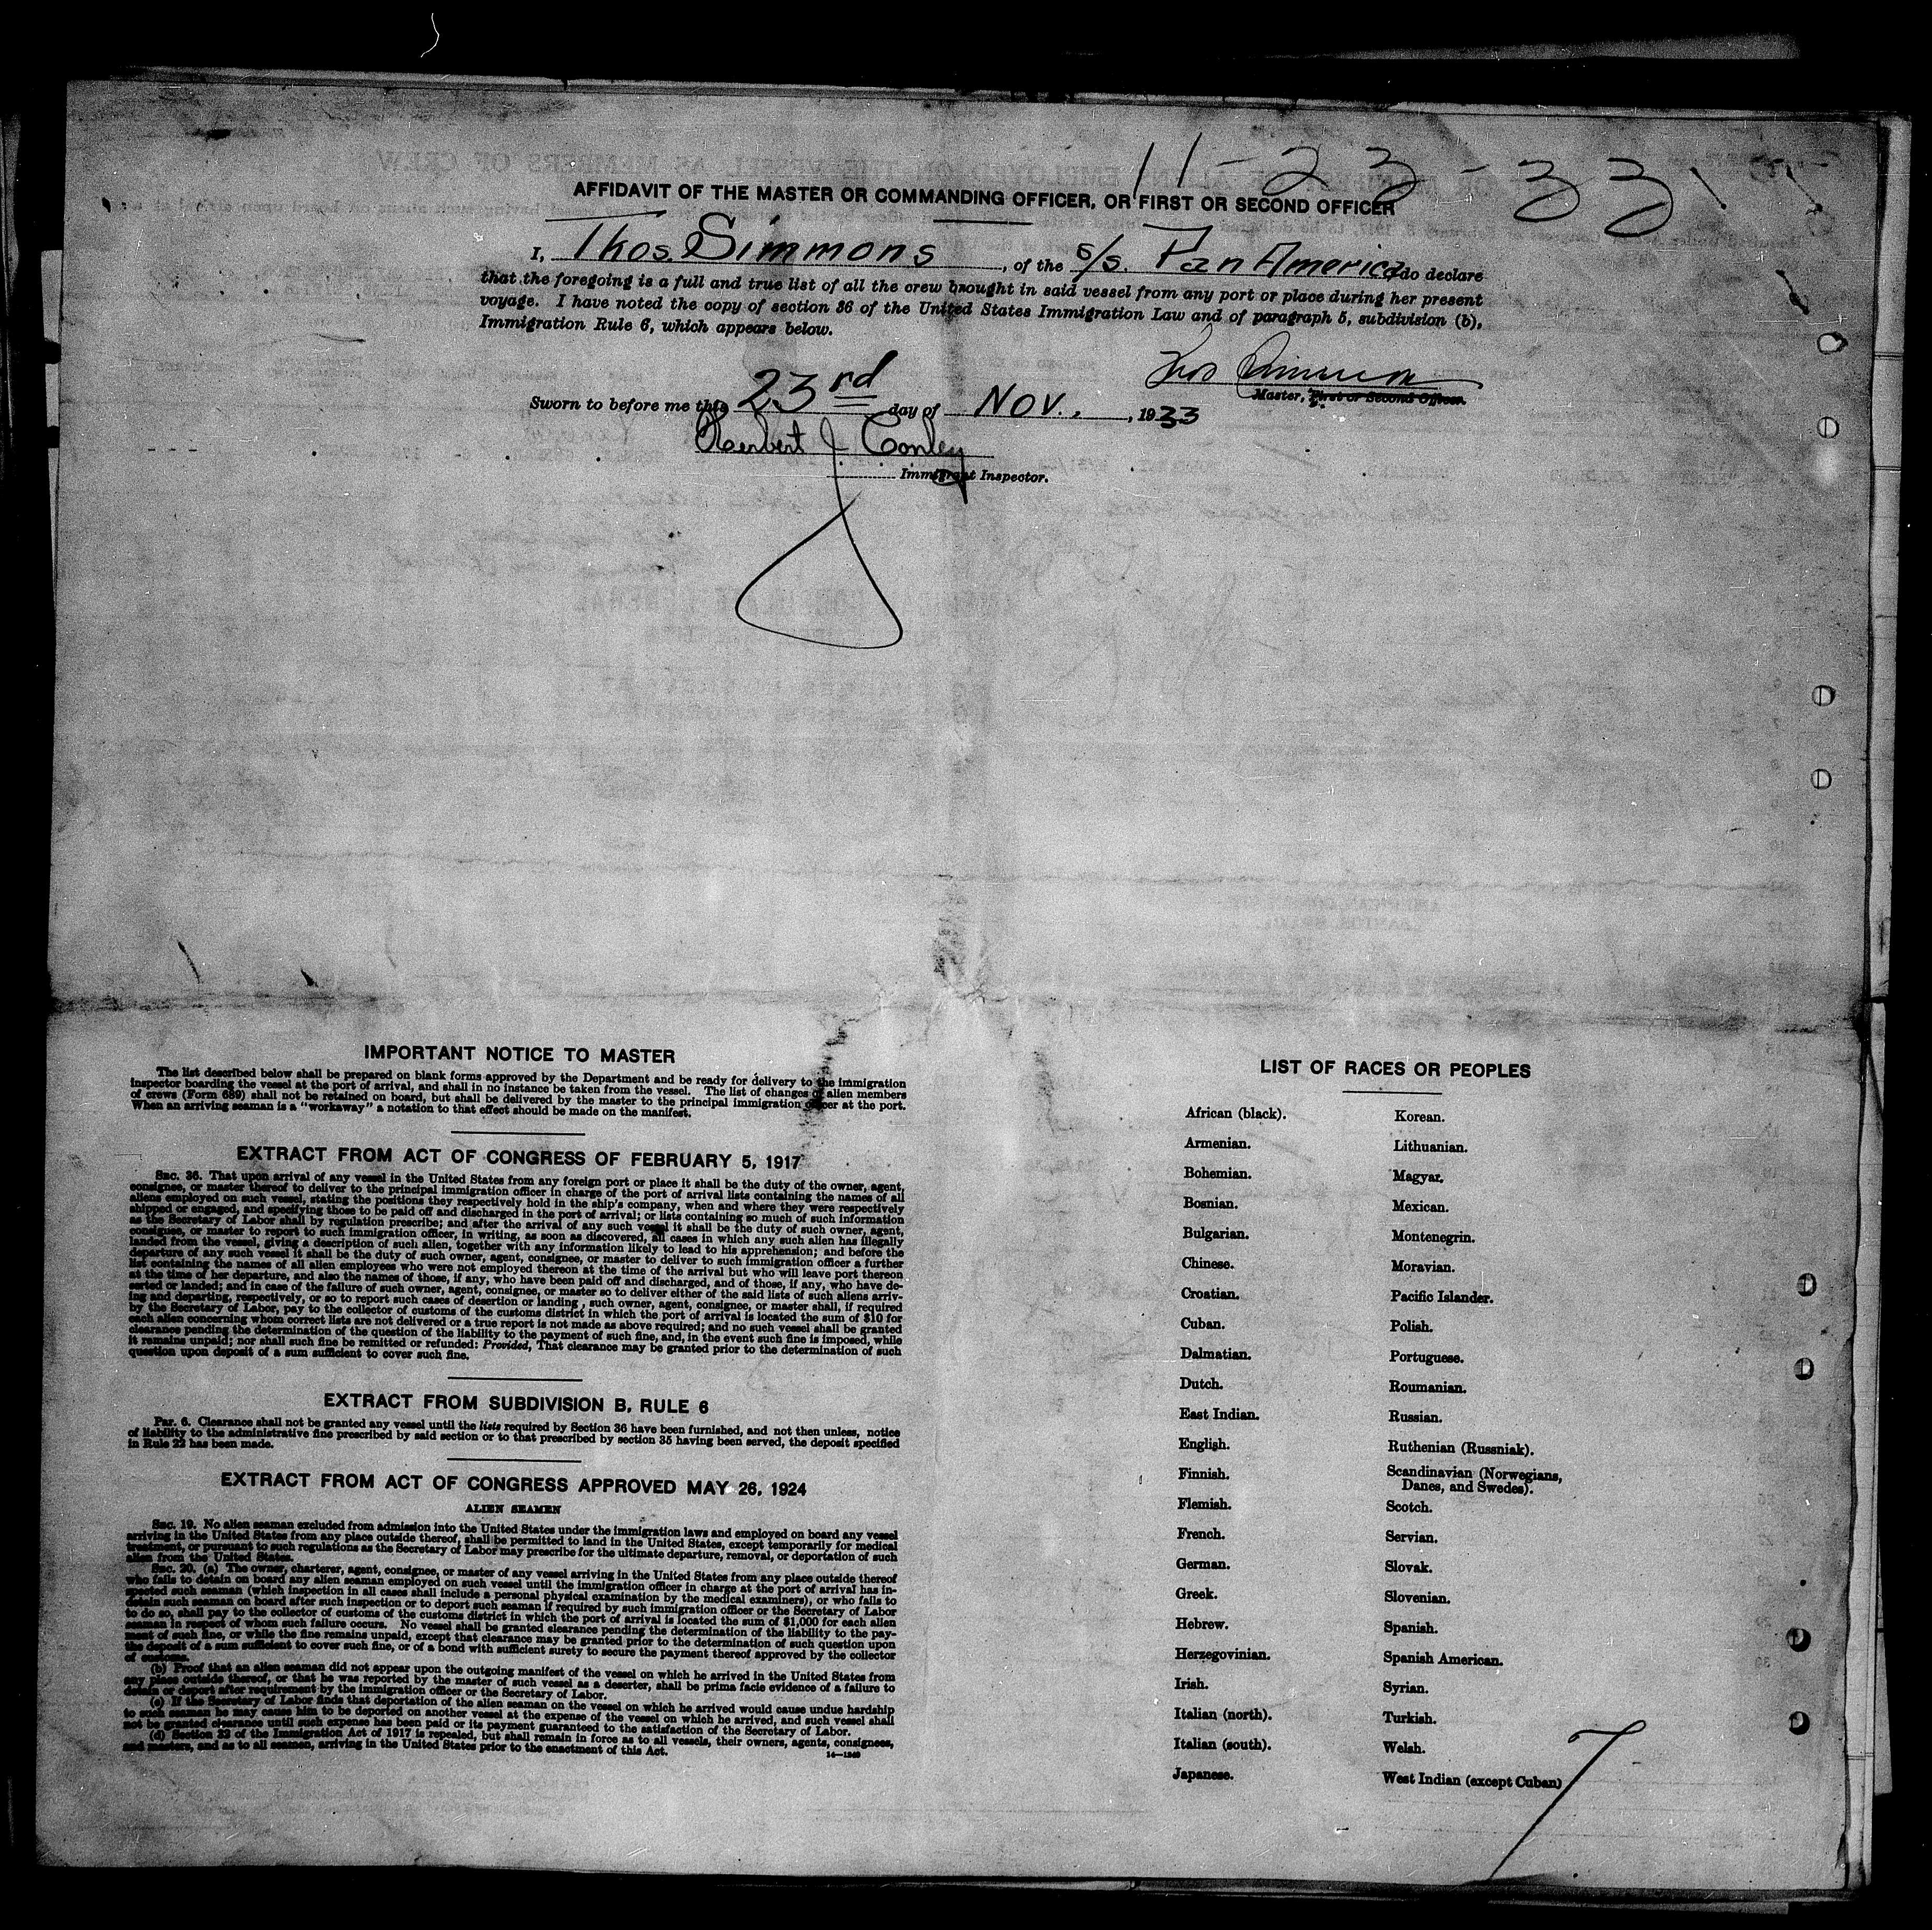 11-23-33
AFFIDAVIT OF THE MASTER OR COMMANDING OFFICER, OR FIRST OR SECOND OFFICER
I, Thos. Simmons, of the s/s. Pan America do declare
that the foregoing is a full and true list of all the crew brought in said vessel from any port or place during her present
voyage. I have noted the copy of section 36 of the United States Immigration Law and of paragraph 5, subdivision (b),
Immigration Rule 6, which appears below.
Thos Simmons
Master, First or Second Officer.
Sworn to before me this 23rd day of Nov., 1933
Herbert J. Conley
Immigrant Inspector.
IMPORTANT NOTICE TO MASTER
The list described below shall be prepared on blank forms approved by the Department and be ready for delivery to the immigration
inspector boarding the vessel at the port of arrival, and shall in no instance be taken from the vessel. The list of changes of alien members
of crews (Form 689) shall not be retained on board, but shall be delivered by the master to the principal immigration officer at the port.
When an arriving seaman is a "workaway" a notation to that effect should be made on the manifest.
EXTRACT FROM ACT OF CONGRESS OF FEBRUARY 5, 1917
SEC. 36. That upon arrival of any vessel in the United States from any foreign port or place it shall be the duty of the owner, agent,
consignee, or master thereof to deliver to the principal immigration officer in charge of the port of arrival lists containing the names of all
aliens employed on such vessel, stating the positions they respectively hold in the ship's company, when and where they were respectively
shipped or engaged, and specifying those to be paid off and discharged in the port of arrival; or lists containing so much of such information
as the Secretary of Labor shall by regulation prescribe; and after the arrival of any such vessel it shall be the duty of such owner, agent,
consignee, or master to report to such immigration officer, in writing, as soon as discovered, all cases in which any such alien has illegally
landed from the vessel, giving a description of such alien, together with any information likely to lead to his apprehension; and before the
departure of any such vessel it shall be the duty of such owner, agent, consignee, or master to deliver to such immigration officer a further
list containing the names of all alien employees who were not employed thereon at the time of the arrival but who will leave port thereon
at the time of her departure, and also the names of those, if any, who have been paid off and discharged, and of those, if any, who have de-
serted or landed; and in case of the failure of such owner, agent, consignee, or master so to deliver either of the said lists of such aliens arriv-
ing and departing, respectively, or so to report such cases of desertion or landing, such owner, agent, consignee, or master shall, if required
by the Secretary of Labor, pay to the collector of customs of the customs district in which the port of arrival is located the sum of $10 for
each alien concerning whom correct lists are not delivered or a true report is not made as above required; and no such vessel shall be granted
clearance pending the determination of the question of the liability to the payment of such fine, and, in the event such fine is imposed, while
it remains unpaid; nor shall such fine be remitted or refunded: Provided, That clearance may be granted prior to the determination of such
question upon deposit of a sum sufficient to cover such fine.
EXTRACT FROM SUBDIVISION B, RULE 6
PAR. 6. Clearance shall not be granted any vessel until the lists required by Section 36 have been furnished, and not then unless, notice
of liability to the administrative fine prescribed by said section or to that prescribed by section 35 having been served, the deposit specified
in Rule 22 has been made.
EXTRACT FROM ACT OF CONGRESS APPROVED MAY 26, 1924
ALIEN SEAMEN
SEC. 19. No alien seaman excluded from admission into the United States under the immigration laws and employed on board any vessel
arriving in the United States from any place outside thereof, shall be permitted to land in the United States, except temporarily for medical
treatment, or pursuant to such regulations as the Secretary of Labor may prescribe for the ultimate departure, removal, or deportation of such
alien from the United States.
SEC. 20. (a) The owner, charterer, agent, consignee, or master of any vessel arriving in the United States from any place outside thereof
who fails to detain on board any alien seaman employed on such vessel until the immigration officer in charge at the port of arrival has in-
spected such seaman (which inspection in all cases shall include a personal physical examination by the medical examiners), or who fails to
detain such seaman on board after such inspection or to deport such seaman if required by such immigration officer or the Secretary of Labor
to do so, shall pay to the collector of customs of the customs district in which the port of arrival is located the sum of $1,000 for each alien
seaman in respect of whom such failure occurs. No vessel shall be granted clearance pending the determination of the liability to the pay-
ment of such fine, or while the fine remains unpaid, except that clearance may be granted prior to the determination of such question upon
the deposit of a sum sufficient to cover such fine, or of a bond with sufficient surety to secure the payment thereof approved by the collector
of customs.
(b) Proof that an alien seaman did not appear upon the outgoing manifest of the vessel on which he arrived in the United States from
any place outside thereof, or that he was reported by the master of such vessel as a deserter, shall be prima facie evidence of a failure to
detain or deport after requirement by the immigration officer or the Secretary of Labor.
(c) If the Secretary of Labor finds that deportation of the alien seaman on the vessel on which he arrived would cause undue hardship
to such seaman he may cause him to be deported on another vessel at the expense of the vessel on which he arrived, and such vessel shall
not be granted clearance until such expense has been paid or its payment guaranteed to the satisfaction of the Secretary of Labor.
(d) Section 32 of the Immigration Act of 1917 is repealed, but shall remain in force as to all vessels, their owners, agents, consignees,
and masters, and as to all seamen, arriving in the United States prior to the enactment of this Act.
LIST OF RACES OR PEOPLES
African (black).
Armenian.
Bohemian.
Bosnian.
Bulgarian.
Chinese.
Croatian.
Cuban.
Dalmatian.
Dutch.
East Indian.
English.
Finnish.
Flemish.
French.
German.
Greek.
Hebrew.
Herzegovinian.
Irish.
Italian (north).
Italian (south).
Japanese.
Korean.
Lithuanian.
Magyar.
Mexican.
Montenegrin.
Moravian.
Pacific Islander.
Polish.
Portuguese.
Roumanian.
Russian.
Ruthenian (Russniak).
Scandinavian (Norwegians,
Danes, and Swedes).
Scotch.
Servian.
Slovak.
Slovenian.
Spanish.
Spanish American.
Syrian.
Turkish.
Welsh.
West Indian (except Cuban)
7